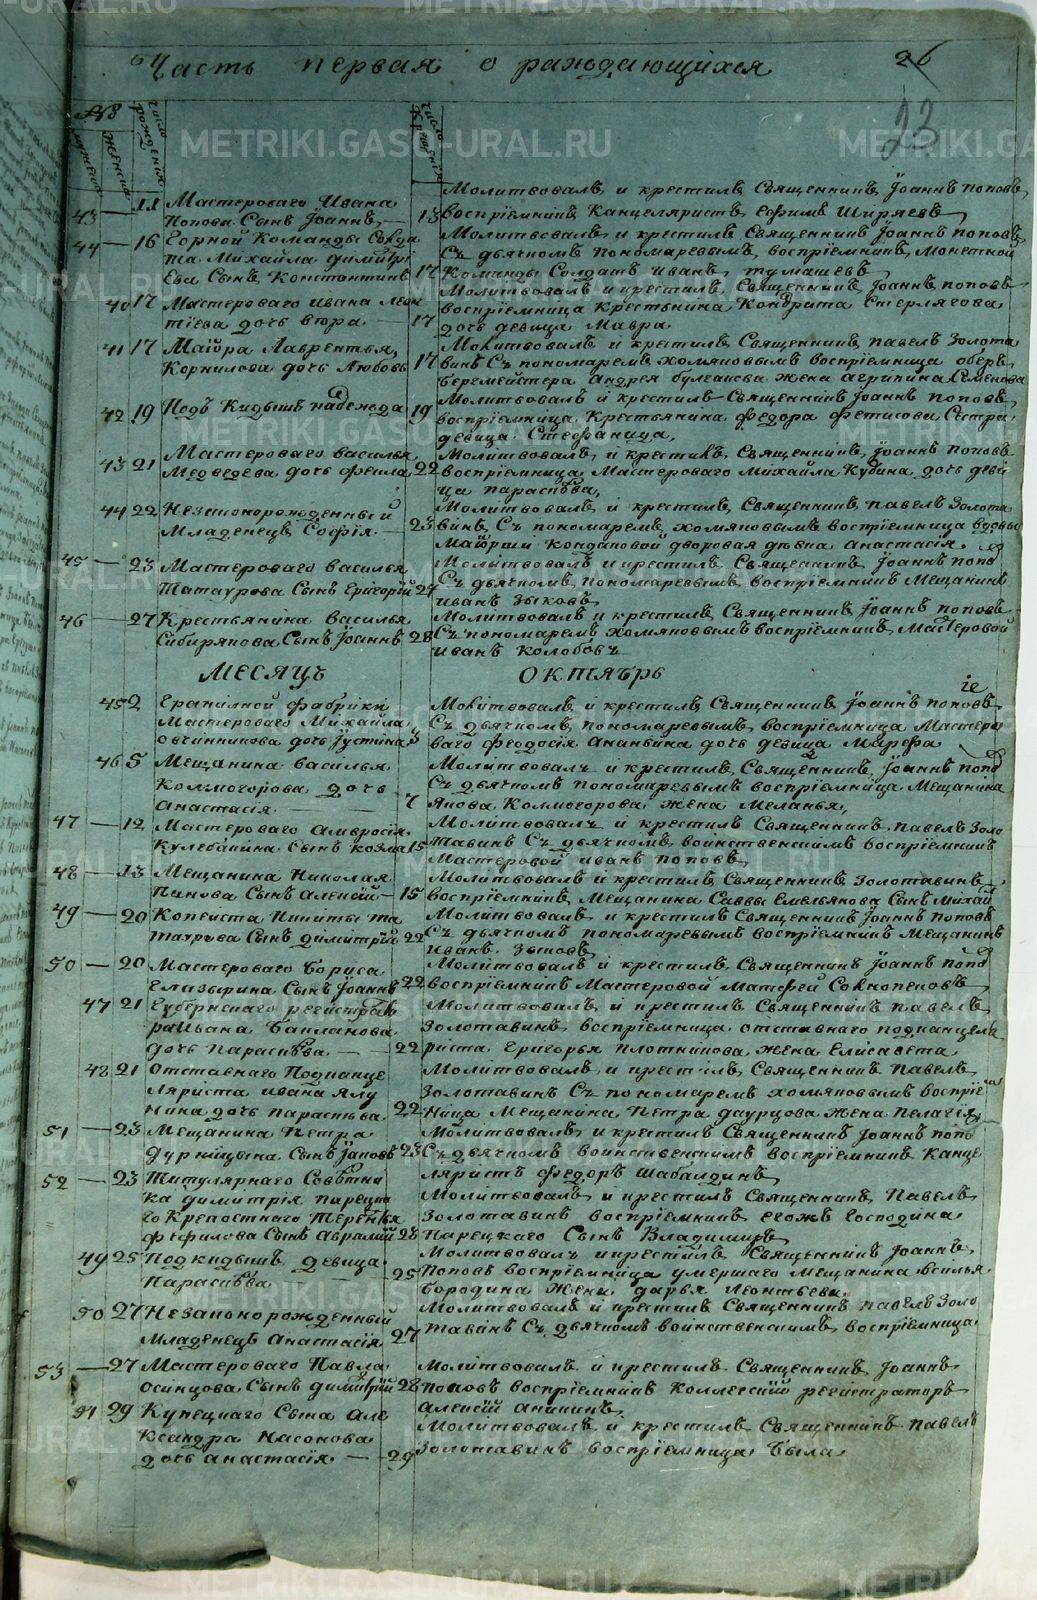 Часть первая о раждающихся
26
23
№
мужеска
женска
число рождения
число крещения
43 — 11 Мастероваго Ивана
Попова Сынъ Іоаннъ, —
13
Молитвовалъ и крестилъ Священникъ Іоаннъ поповъ
воспріемникъ Канцеляристъ Ефимъ Ширяевъ
44 — 16 Горной Команды Солда
та Михайла димитрі
ева Сынъ Константинъ
17
Молитвовалъ и крестилъ Священникъ Іоаннъ поповъ
Съ дьячкомъ пономаревымъ, воспріемникъ, Монетной
Команды Солдатъ иванъ, тумашевъ
40 17 Мастероваго ивана леон
тіева дочь вѣра. —
17
Молитвовалъ и крестилъ Священникъ Іоаннъ поповъ
воспріемница крестьянина Кондрата Стерлягова
дочь девица Мавра.
41 17 Маіора Лаврентья,
Корнилова дочь Любовь
17
Молитвовалъ и крестилъ Священникъ, павелъ Золота
винъ Съ пономаремъ хомяковымъ воспріемница оберъ
бергмейстера Андрея жена агрипина Семенова
42 19 Подъ Кидышъ надежда
19
Молитвовалъ и крестилъ Священникъ Іоаннъ поповъ
воспріемница, Крестьянина Федора Фетисова Сестра
девица Стефанида,
43 21 Мастероваго василья
Медведева дочь Фекла
22
Молитвовалъ, и крестилъ, Священникъ, Іоаннъ поповъ
воспріемница, Мастероваго Михайла Кубина дочь деви
ца парасковья,
44 22 Незаконорожденный
Младенецъ Софія. —
23
Молитвовалъ и крестилъ, Священникъ павелъ Золота
винъ, Съ пономаремъ хомяковымъ воспріемница вдовы
Маіорши дворовая дѣвка анастасія.
45 — 23 Мастероваго василья
Татаурова Сынъ Григорій
27
Молитвовалъ и крестилъ Священникъ Іоаннъ попо
Съ дьячкомъ, пономаревымъ, воспріемникъ Мещанинъ
иванъ Зыковъ,
46 — 27 Крестьянина василья
Сибирякова Сынъ Іоаннъ
28
Молитвовалъ и крестилъ Священникъ Іоаннъ поповъ
Съ пономаремъ хомяковымъ воспріемникъ, Мастеровой
иванъ Колобовъ
МЕСЯЦЪ ОКТЯБРЬ
45 2 Гранилной фабрики
Мастероваго Михайла
овчинникова дочь Іустина
3
Молитвовалъ и крестилъ Священникъ Іоаннъ поповъ
Съ дьячкомъ, пономаревымъ, воспріемница Мастеро
ваго Феодосія Ананьина дочь девица Марфа
46 5 Мещанина василья
Колмогорова дочь
Анастасія.
7
Молитвовалъ и крестилъ, Священникъ, Іоаннъ попо
Съ дьячкомъ пономаревымъ воспріемница Мещанина
Якова Колмогорова жена Меланья,
47 — 12 Мастероваго Амвросія
Кулебакина Сынъ козма
15
Молитвовалъ и крестилъ Священникъ павелъ Золо
тавинъ Съ дьячкомъ, воинственскимъ воспріемникъ
Мастеровой иванъ поповъ,
48 — 13 Мещанина Николая
Панова Сынъ Алексій —
15
Молитвовалъ и крестилъ Священникъ Золотавинъ
воспріемникъ, Мещанина Саввы Емельянова Сынъ Михай
49 — 20 Копеиста Никиты та
таурова Сынъ димитрій
22
Молитвовалъ и крестилъ Священникъ Іоаннъ поповъ
Съ дьячкомъ пономаревымъ воспріемникъ Мещанинъ
иванъ Зыковъ,
50 — 20 Мастероваго Бориса
Елизырина Сынъ Іоаннъ
22
Молитвовалъ и крестилъ, Священникъ Іоаннъ попо
воспріемникъ Мастеровой Матвей Соклоповъ,
47 21 Губернскаго регистрато
ра ивана Бапланова
дочь парасковья. —
22
Молитвовалъ и крестилъ Священникъ павелъ
Золотавинъ, воспріемница отставнаго подканцеля
риста Григорья плотникова жена Елисавета
48 21 Отставнаго Подканце
ляриста ивана Ялу
нина дочь парасковья.
22
Молитвовалъ и крестилъ, Священникъ Павелъ
Золотавинъ Съ пономаремъ хомяковымъ воспріем
ница Мещанина Петра даурцова жена пелагія
51 — 23 Мещанина Петра
Дурницына Сынъ Іаковъ
23
Молитвовалъ и крестилъ Священникъ Іоаннъ попо
Съ дьячкомъ воинственскимъ воспріемникъ Канце
ляристъ Федоръ Шабалдинъ
52 — 23 Титулярнаго Совѣтни
ка димитрія парецка
го Крепостнаго Терентья
Фефилова Сынъ Авраамій
28
Молитвовалъ и крестилъ Священникъ, Павелъ
Золотавинъ воспріемникъ егожъ Господина
парецкаго Сынъ Владимиръ,
49 25 Подкидышъ девица
парасковья —
25
Молитвовалъ и крестилъ Священникъ Іоаннъ
Поповъ воспріемница умершаго Мещанина василья
бородина жена дарья леонтьева
50 27 Незаконорожденный
Младенецъ Анастасія
27
Молитвовалъ и крестилъ Священникъ павелъ Золо
тавинъ Съ дьячкомъ воинственскимъ, воспріемница
53 — 27 Мастероваго Павла
Осинцова Сынъ димитрій
28
Молитвовалъ и крестилъ Священникъ, Іоаннъ
поповъ воспріемникъ Коллегскій регистраторъ
Алексій аничинъ,
51 29 Купецкаго Сына Але
ксандра Насонова
дочь анастасія. —
29
Молитвовалъ, и крестилъ Священникъ павелъ
Золотавинъ воспріемница была
METRIKI.GASO-URAL.RU